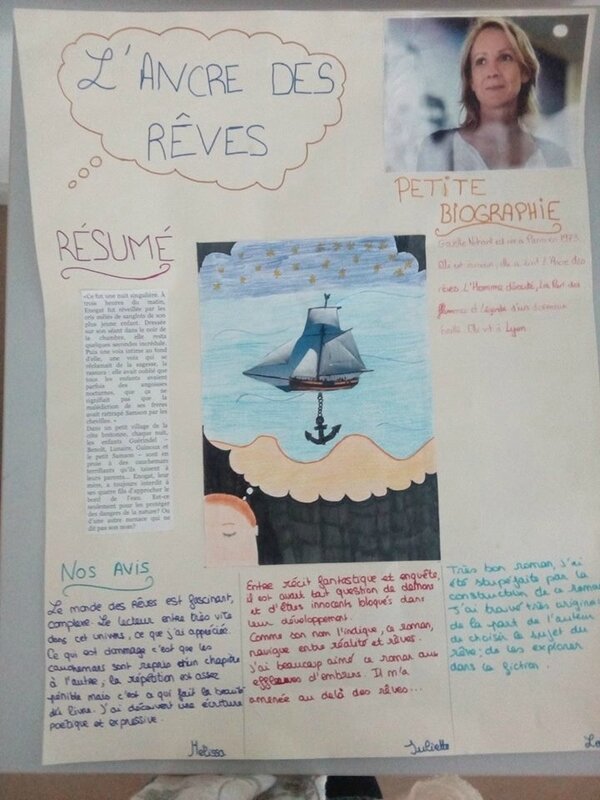 L'ANCRE DES
RÊVES
PETITE
BIOGRAPHIE
Gaëlle Nohant est née à Paris en 1973.
Elle est écrivain, elle a écrit L'Ancre des
rêves, L'Homme dérouté, La Part des
flammes et Légende d'un dormeur
éveillé. Elle vit à Lyon.
RÉSUMÉ
«Ce fut une nuit singulière. À
trois heures du matin,
Enogat fut réveillée par les
cris mêlés de sanglots de son
plus jeune enfant. Dressée
sur son séant dans le noir de
la chambre, elle resta
quelques secondes incrédule.
Puis une voix intime au fond
d'elle, une voix qui se
réclamait de la sagesse, la
rassura : elle avait oublié que
tous les enfants avaient
parfois des angoisses
nocturnes, que ça ne
signifiait pas que la
malédiction de ses frères
avait rattrapé Samson par les
chevilles. »
Dans un petit village de la
côte bretonne, chaque nuit,
les enfants Guérindel –
Benoît, Lunaire, Guinoux et
le petit Samson – sont en
proie à des cauchemars
terrifiants qu'ils taisent à
leurs parents... Enogat, leur
mère, a toujours interdit à
ses quatre fils d'approcher le
bord de l'eau. Est-ce
seulement pour les protéger
des dangers de la nature? Ou
d'une autre menace qui ne
dit pas son nom?
NOS AVIS
Le monde des Rêves est fascinant,
complexe. Le lecteur entre très vite
dans cet univers, ce que j'ai apprécié.
Ce qui est dommage c'est que les
cauchemars sont repris d'un chapitre
à l'autre, la répétition est assez
pénible mais c'est ce qui fait la beauté
du livre. J'ai découvert une écriture
poétique et expressive.
Melissa
Entre récit fantastique et enquête,
il est avant tout question de démons
et d'êtres innocents bloqués dans
leur développement.
Comme son nom l'indique, ce roman,
navigue entre réalité et rêves.
J'ai beaucoup aimé ce roman aux
effluves d'embruns. Il m'a
amenée au delà des rêves...
Juliette
Très bon roman, j'ai
été stupéfaite par la
construction de ce roman.
J'ai trouvé très original
de la part de l'auteur
de choisir le sujet du
rêve; de les explorer
dans la fiction.